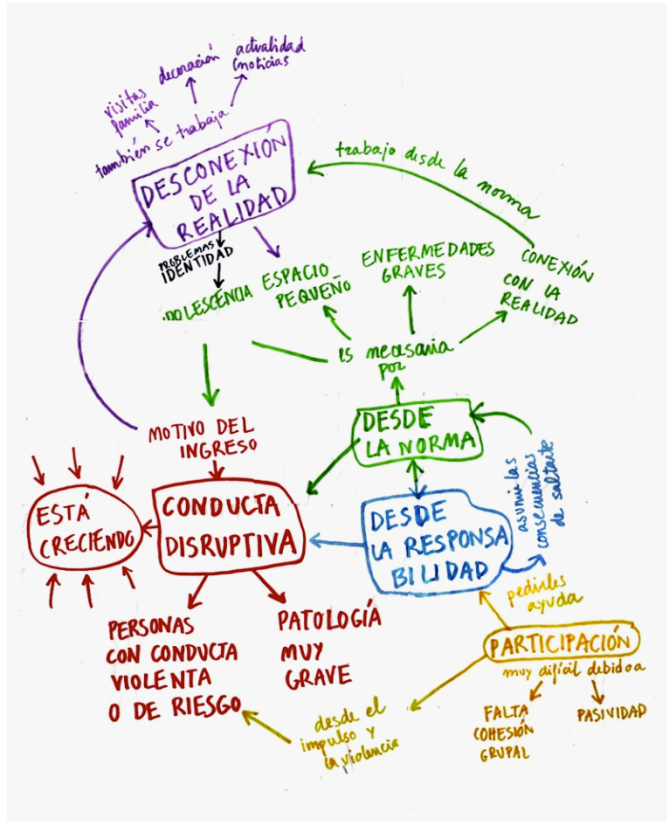 visitas
familia
decoración
actualidad
(noticias
también se trabaja
DESCONEXIÓN
DE LA
REALIDAD
trabajo desde la norma
PROBLEMAS
IDENTIDAD
ADOLESCENCIA
ESPACIO
PEQUEÑO
ENFERMEDADES
GRAVES
CONEXIÓN
CON LA
REALIDAD
is necesaria
por
MOTIVO DEL
INGRESO
DESDE
LA NORMA
ESTÁ
CRECIENDO
CONDUCTA
DISRUPTIVA
DESDE
LA RESPONSA
BILIDAD
asumir las
consecuencias
de saltarte
pedirles
ayuda
PERSONAS
CON CONDUCTA
VIOLENTA
O DE RIESGO
PATOLOGÍA
MUY
GRAVE
PARTICIPACIÓN
muy difícil debido a
FALTA
COHESIÓN
GRUPAL
PASIVIDAD
desde el
impulso y
la violencia